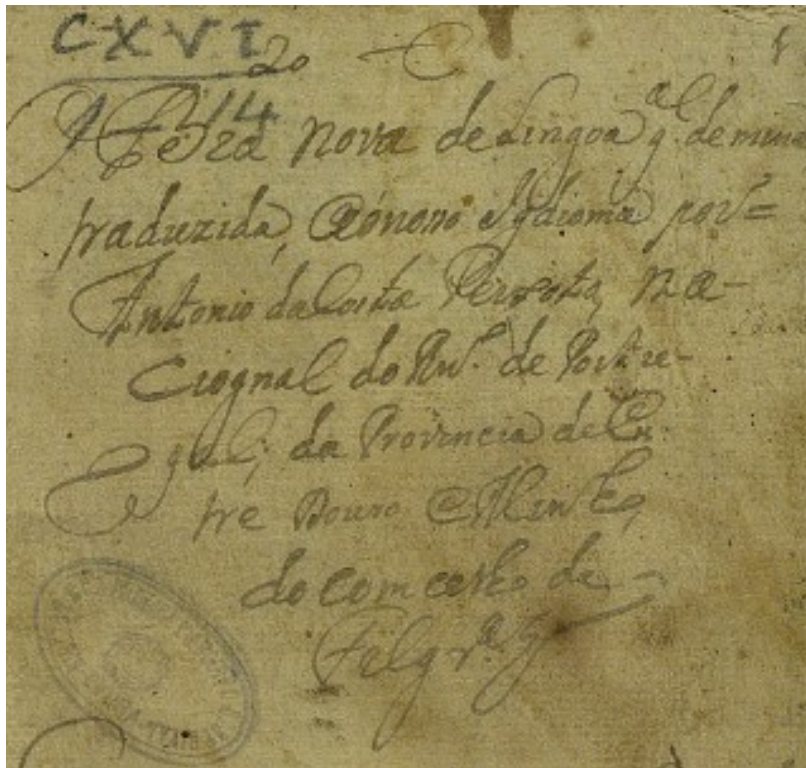 CXVI
2-14
Obra nova de Lingoa g.al de mina
traduzida, ao nosso Igdioma por=
Antonio da Costa Peixoto, Na-
ciognal do Rn.º de Portu-
gal, da Provincia de En-
tre Douro e Minho,
do comcelho de-
Felgr.as